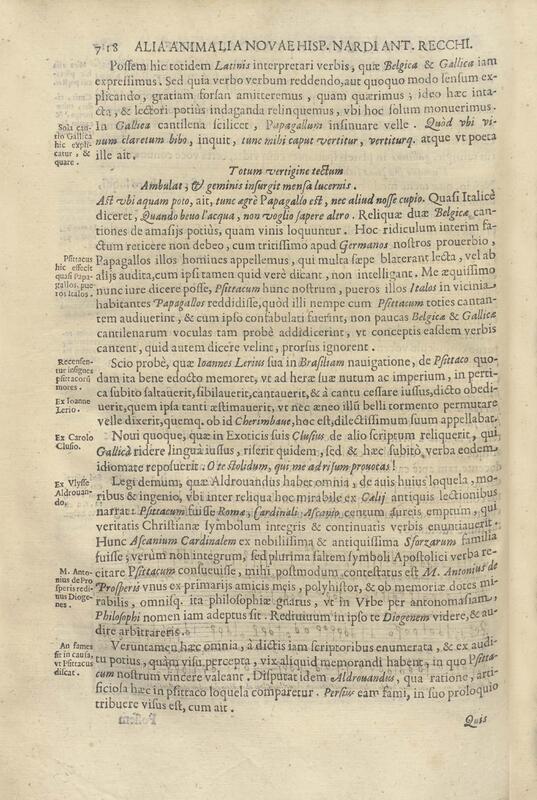 718 ALIA ANIMALIA NOVAE HISP. NARDI ANT. RECCHI.
Possem hic totidem Latinis interpretari verbis, quæ Belgica & Gallica iam
expressimus. Sed quia verbo verbum reddendo, aut quoquo modo sensum ex-
plicando, gratiam forsan amitteremus, quam quærimus; ideo hæc inta-
cta, & lectori potiùs indaganda relinquemus, vbi hoc solum monuerimus.
Sola can-
tio Gallica
hic expli-
catur, &
quare.
In Gallica cantilena scilicet, Papagallum insinuare velle. Quòd vbi vi-
num claretum bibo, inquit, tunc mihi caput vertitur, vertiturq. atque vt poeta
ille ait.
Totum vertigine tectum
Ambulat, & geminis insurgit mensa lucernis.
Ast vbi aquam poto, ait, tunc agrè Papagallo est, nec aliud nosse cupio. Quasi Italicè
diceret, Quando beuo l'acqua, non voglio sapere altro. Reliquæ duæ Belgicæ can-
tiones de amasijs potiùs, quam vinis loquuntur. Hoc ridiculum interim fa-
ctum reticere non debeo, cum tritissimo apud Germanos nostros prouerbio,
Psittacus
hic effecit
quasi Papa-
gallos, pue-
ros Italos.
Papagallos illos homines appellemus, qui multa sæpe blaterant lecta, vel ab
alijs audita, cum ipsi tamen quid verè dicant, non intelligant. Me æquissimo
nunc iure dicere posse, Psittacum hunc nostrum, pueros illos Italos in vicinia
habitantes Papagallos reddidisse, quòd illi nempe cum Psittacum toties cantan-
tem audiuerint, & cum ipso confabulati fuerint, non paucas Belgica & Gallica
cantilenarum voculas tam probè addidicerint, vt conceptis easdem verbis
cantent, quid autem dicere velint, prorsus ignorent.
Recensen-
tur insignes
psittacorũ
mores.
Ex Ioanne
Lerio.
Scio probè, quæ Ioannes Lerius sua in Brasiliam nauigatione, de Psittaco quo-
dam ita bene edocto memoret, vt ad heræ suæ nutum ac imperium, in perti-
ca subito saltauerit, sibilauerit, cantauerit, & à cantu cessare iussus, dicto obedi-
uerit, quem ipsa tanti æstimauerit, vt nec æneo illũ belli tormento permutare
velle dixerit, quemq. ob id Cherimbaue, hoc est, dilectissimum suum appellabat.
Ex Carolo
Clusio.
Noui quoque, quæ in Exoticis suis Clusius de alio scriptum reliquerit, qui
Gallicè ridere lingua iussus, riserit quidem, sed & hæc subitò verba eodem
idiomate reposuerit. O te stolidum, qui me ad risum prouocas!
Ex Vlysse
Aldrouan-
do.
Legi demum, quæ Aldrouandus habet omnia, de auis huius loquela, mo-
ribus & ingenio, vbi inter reliqua hoc mirabile ex Cælij antiquis lectionibus
narrat: Psittacum fuisse Romæ, Cardinali Ascanio centum aureis emptum, qui
veritatis Christianæ symbolum integris & continuatis verbis enuntiauerit.
Hunc Ascanium Cardinalem ex nobilissima & antiquissima Sforzarum familia
fuisse; verùm non integrum, sed plurima saltem symboli Apostolici verba re-
M. Anto-
nius de Pro
speris redi-
uus Dioge-
nes.
citare Psittacum consueuisse, mihi postmodum contestatus est M. Antonius de
Prosperis vnus ex primarijs amicis meis, polyhistor, & ob memoriæ dotes mi-
rabilis, omnisq. ita philosophiæ gnarus, vt in Vrbe per antonomasiam,
Philosophi nomen iam adeptus sit. Rediuiuum in ipso te Diogenem videre, & au-
dire arbitrareris.
An fames
sit in causa,
vt Psittacus
discat.
Veruntamen hæc omnia, à dictis iam scriptoribus enumerata, & ex audi-
tu potius, quàm visu percepta, vix aliquid memorandi habent, in quo Psitta-
cum nostrum vincere valeant. Disputat idem Aldrouandus, qua ratione, arti-
ficiosa hæc in psittaco loquela comparetur. Persius eam fami, in suo proloquio
tribuere visus est, cum ait.
Quis